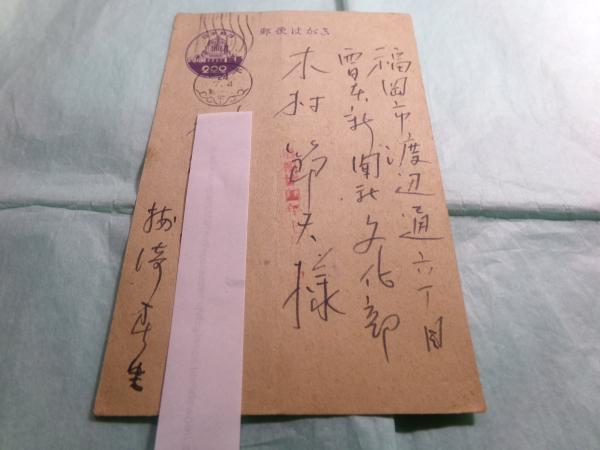 郵便はがき
200
福岡市渡辺通六丁目
西日本新聞社文化部
木村節夫様
梅崎春生